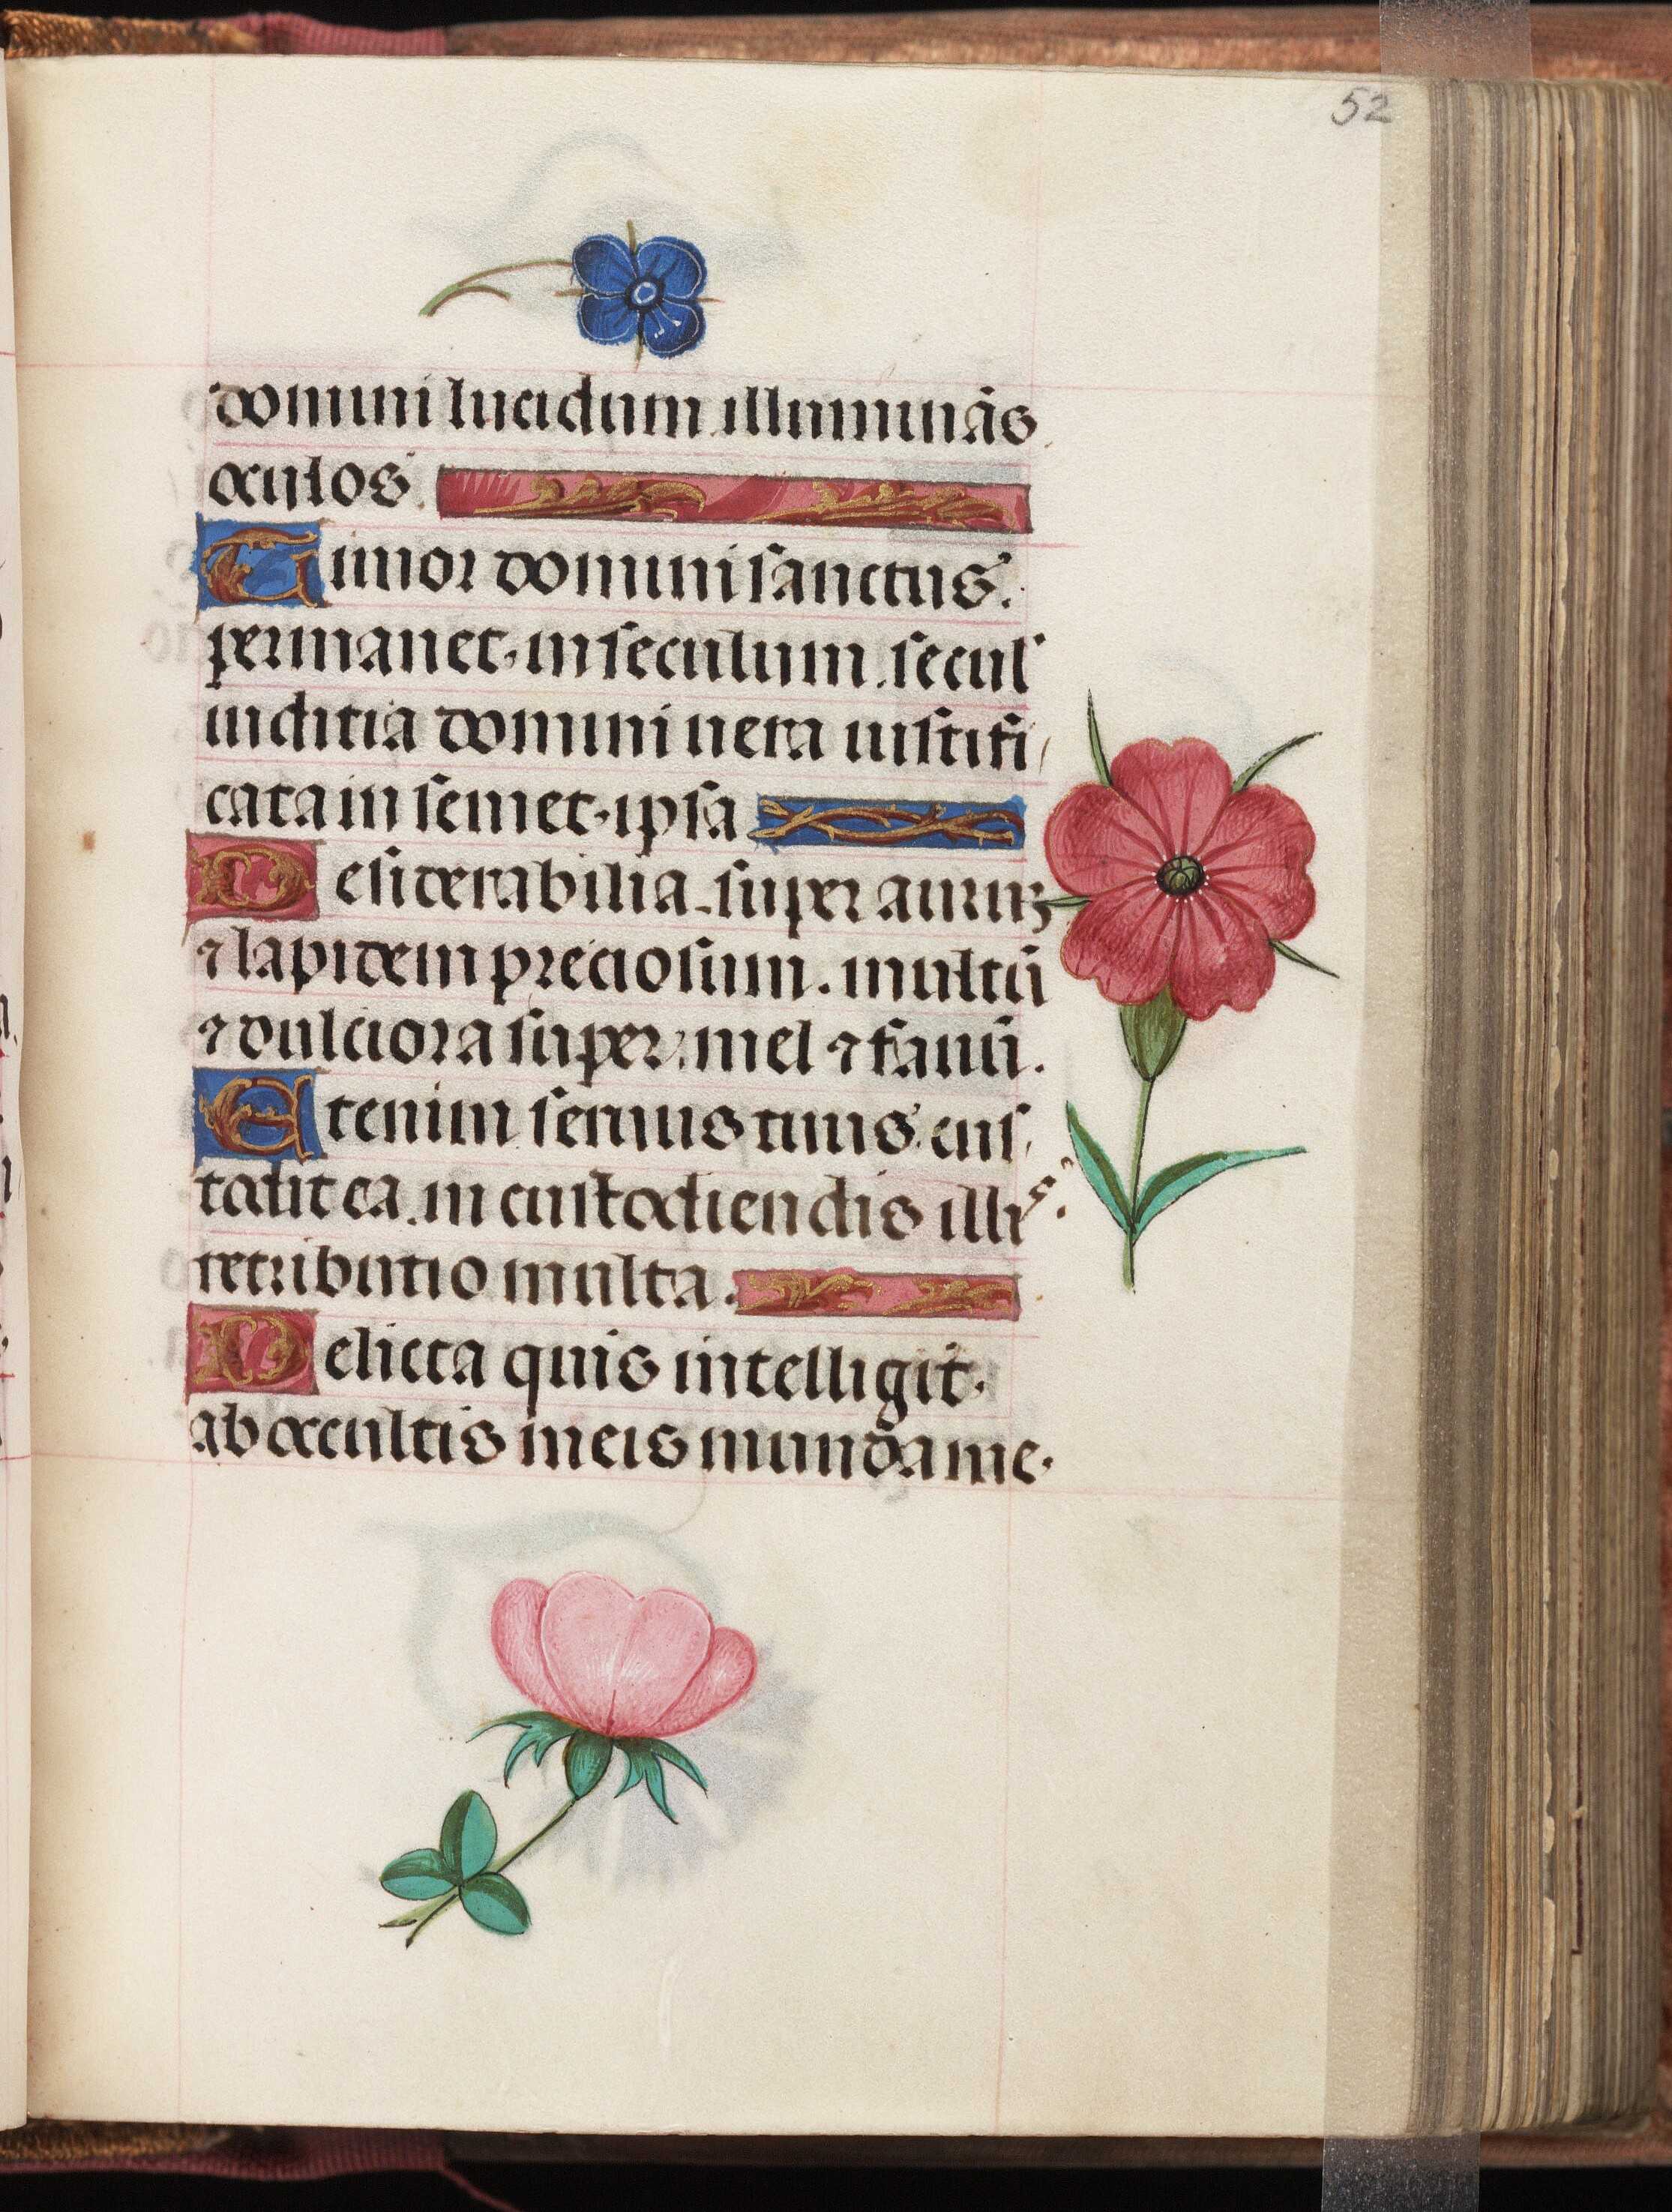 52
domini lucidum illuminãs
oculos
Timor domini sanctus.
permanet in seculum secul
iuditia domini uera iustifi
cata in semet ipsa
Desiderabilia super auruꝫ
⁊ lapidem preciosum. multũ
⁊ dulciora super mel ⁊ fauũ.
Etenim seruus tuus cus
todit ea in custodiendis illis.
retributio multa.
Delicta quis intelligit.
ab occultis meis munda me.